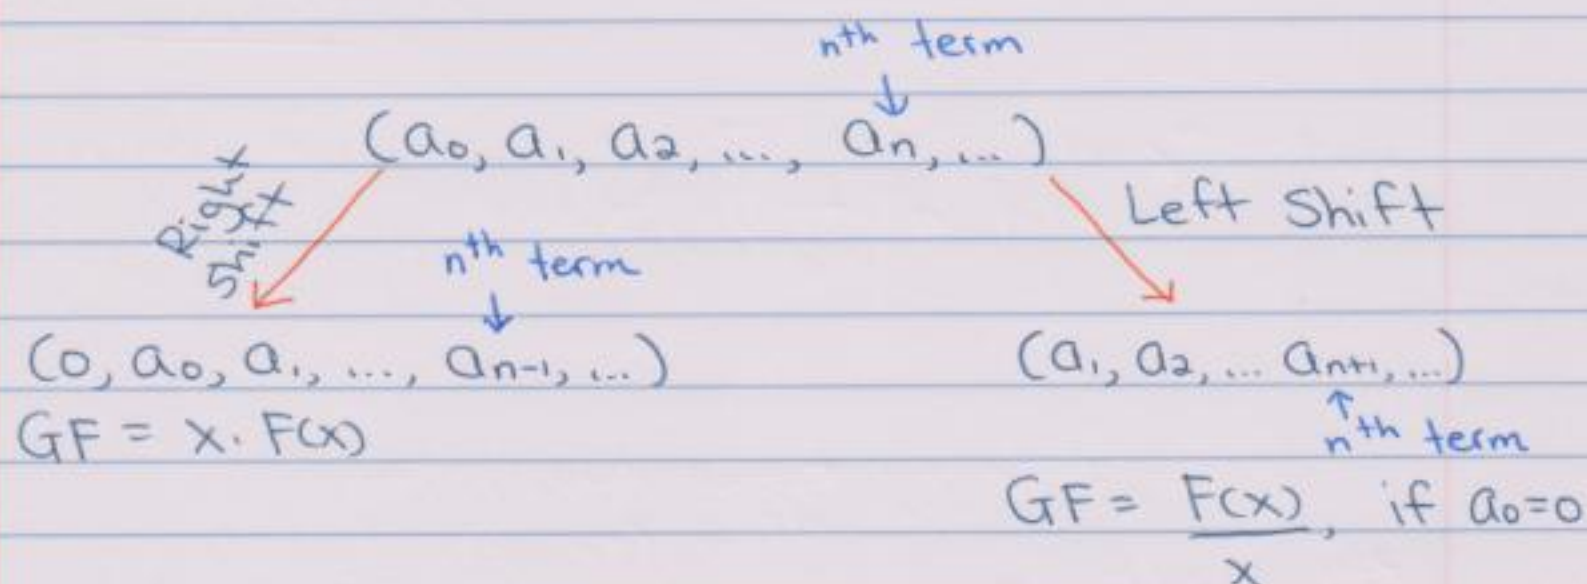 nth term
↓
(a0, a1, a2, ..., an, ...)
Right Shift
Left Shift
nth term
↓
(0, a0, a1, ..., an-1, ...)
(a1, a2, ... an+1, ...)
GF = x. F(x)
↑
nth term
GF = F(x)/x, if a0=0